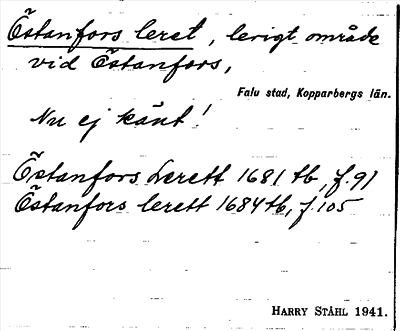 Östanfors leret, lerigt område
vid Östanfors,
Falu stad, Kopparbergs län.
Nu ej känt!
Östanfors Lerett 1681 tb, f. 91
Östanfors lerett 1684 tb, f. 105
HARRY STÅHL 1941.